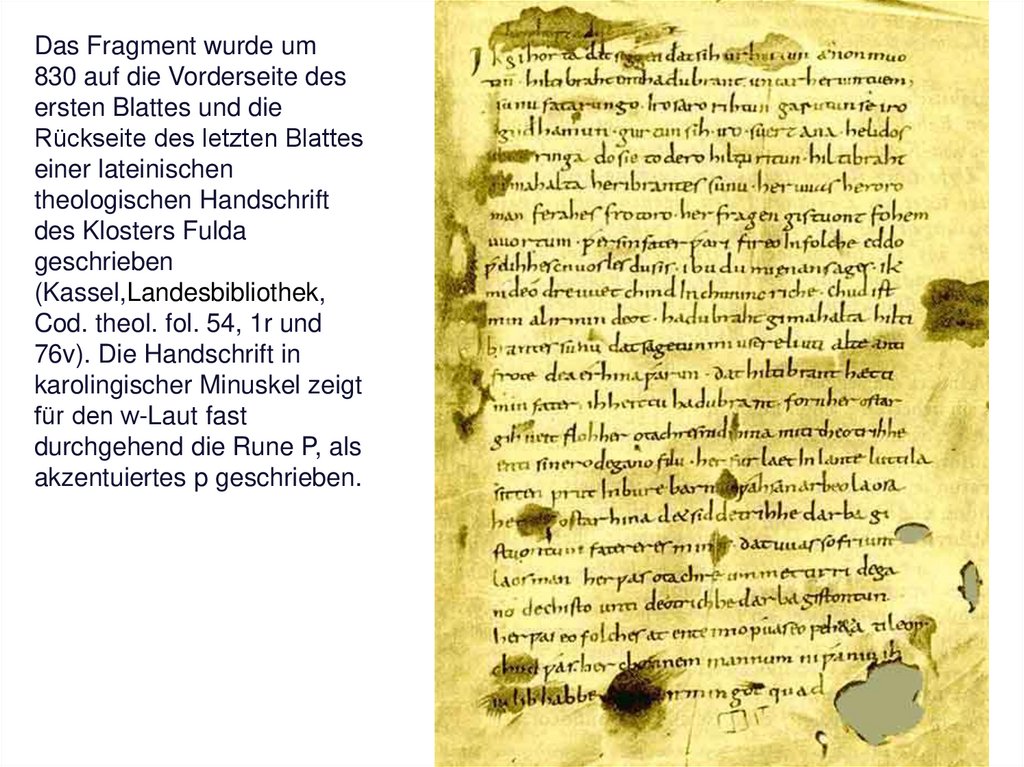 Das Fragment wurde um
830 auf die Vorderseite des
ersten Blattes und die
Rückseite des letzten Blattes
einer lateinischen
theologischen Handschrift
des Klosters Fulda
geschrieben
(Kassel,Landesbibliothek,
Cod. theol. fol. 54, 1r und
76v). Die Handschrift in
karolingischer Minuskel zeigt
für den w-Laut fast
durchgehend die Rune P, als
akzentuiertes p geschrieben.
Ik gihorta dat seggen dat sih urhettun ænon muo
tin · hiltibraht enti hadubrant · untar heriun tuem,
sunu fatarungo · iro saro rihtun garutun se iro
gudhamun · gurtun sih · iro · suert ana · helidos
ringa do sie to dero hiltu ritun · hiltibraht
gimahalta heribrantes sunu · her uuas heroro
man ferahes frotoro · her fragen gistuont fohem
uuortum · ƿer sin fater ƿari fireo In folche eddo
ƿelihhes cnuosles du sis · ibu du mi enan sages · ik
mi de odre uuet chind In chunincriche · chud ist
min al irmin deot · hadubraht gimahalta hilti
brantes sunu dat sagetun mi usere liuti alte anti
frote dea erhina ƿarun · dat hiltibrant hætti
min fater · ih heittu hadubrant · forn her ostar
gihueit floh her otachres nid hina miti theotrihhe
enti sinero degano filu · her fur laet In lante luttila
sitten prut In bure barn unƿahsan arbeo laosa
ostar hina det sid detrihhe darba gi
stuontum fatereres mines · dat uuas so friunt
laos man her ƿas otachre ummet tirri dega
no dechisto unti deotrichhe darba gistontun
her ƿas eo folches at ente imo ƿuas eo feheta ti leop ·
chud ƿas her chonnem mannum ni ƿaniu ih
iu lib habbe irmingot quad